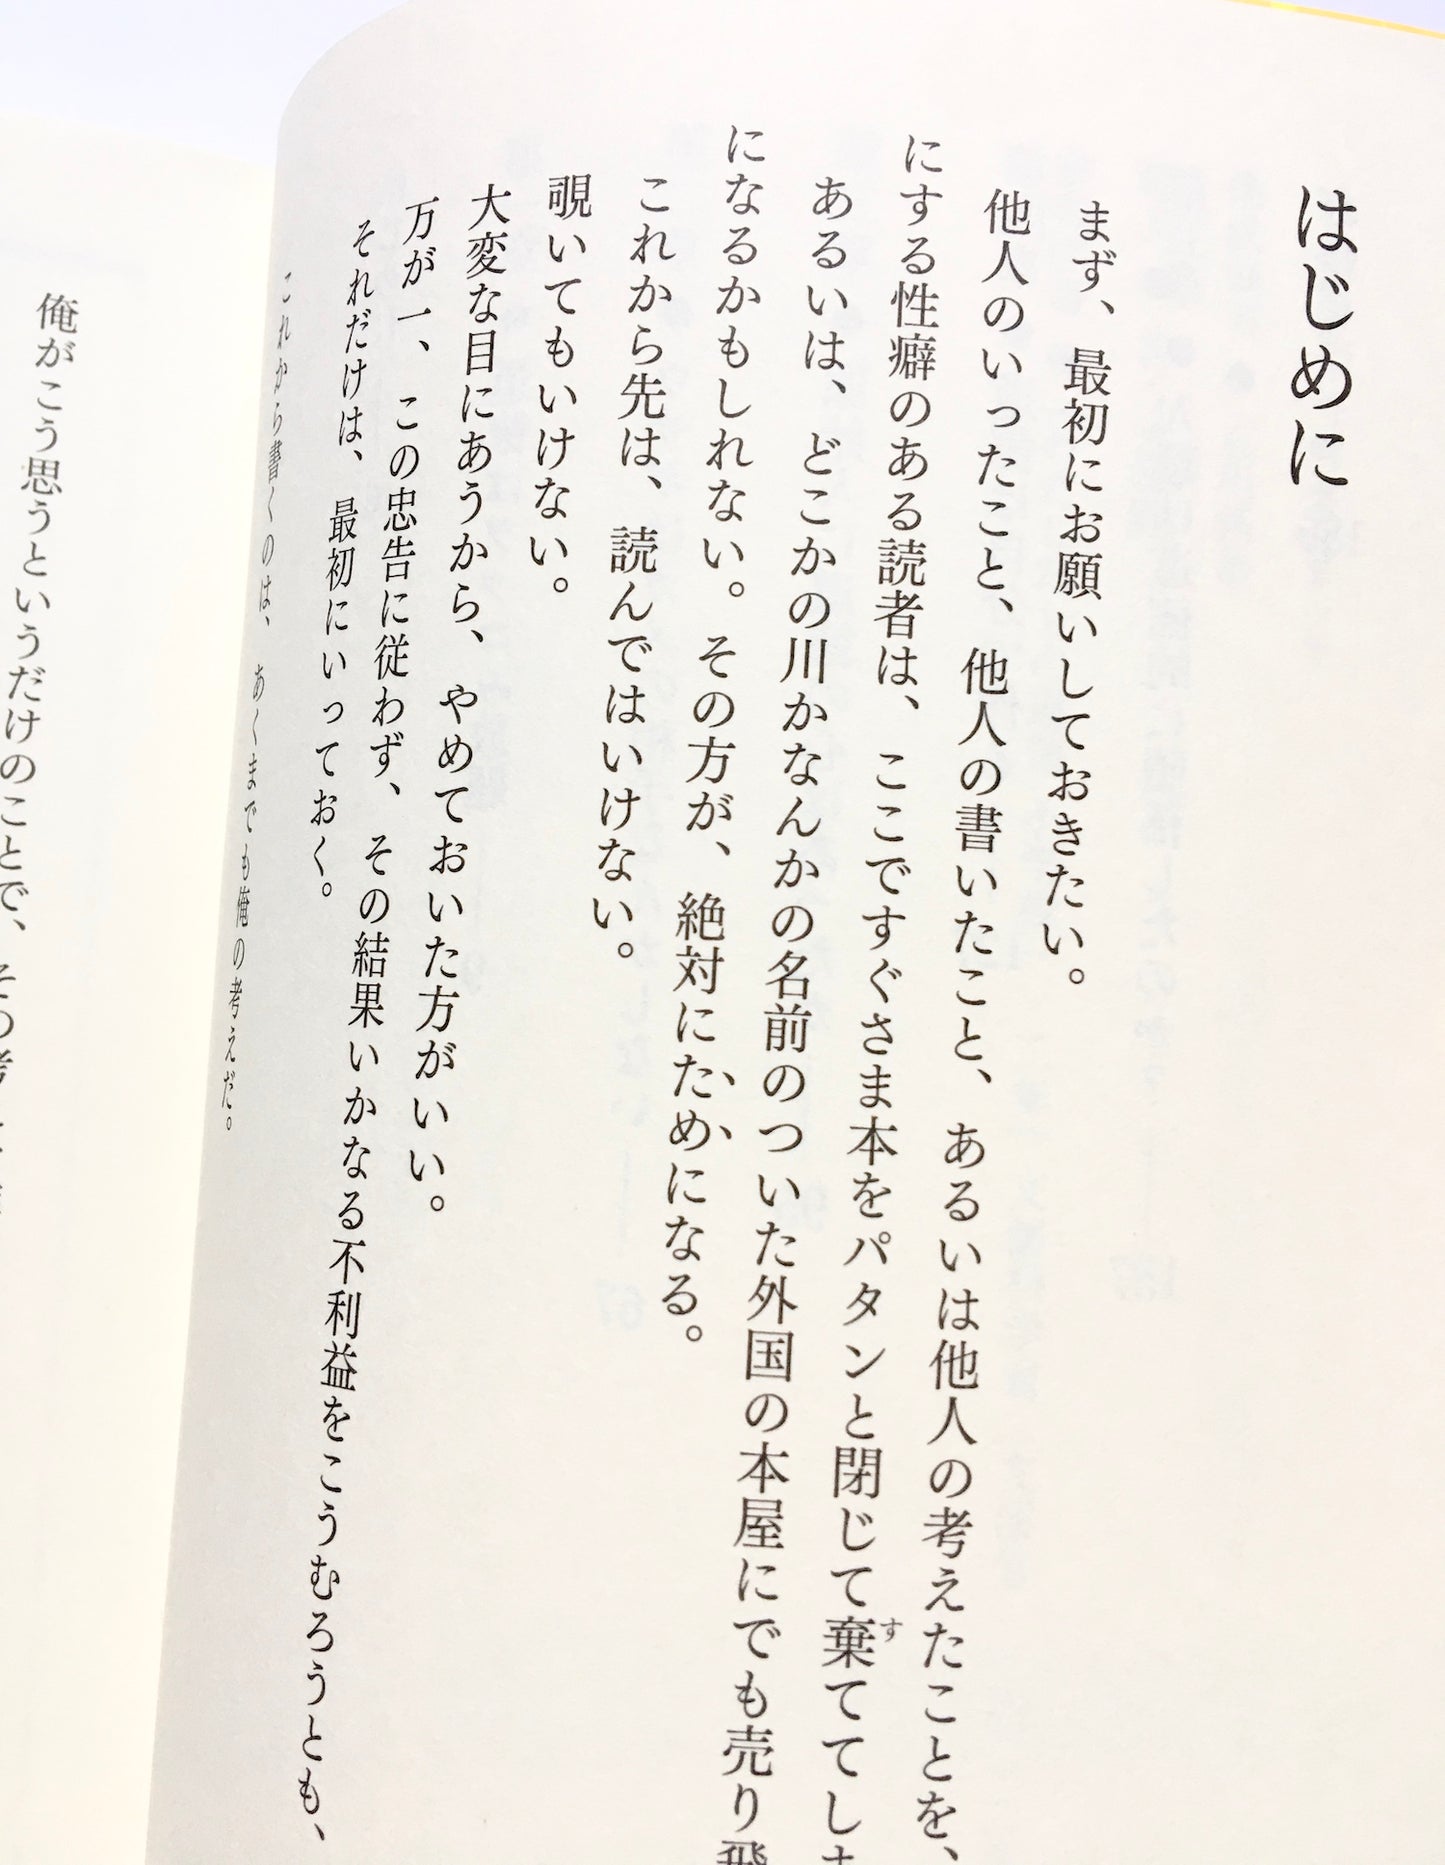 はじめに
まず、最初にお願いしておきたい。
他人のいったこと、他人の書いたこと、あるいは他人の考えたことを、
にする性癖のある読者は、ここですぐさま本をパタンと閉じて棄ててしま
す
あるいは、どこかの川かなんかの名前のついた外国の本屋にでも売り飛
になるかもしれない。その方が、絶対にためになる。
これから先は、読んではいけない。
覗いてもいけない。
大変な目にあうから、やめておいた方がいい。
万が一、この忠告に従わず、その結果いかなる不利益をこうむろうとも、
それだけは、最初にいっておく。
これから書くのは、あくまでも俺の考えだ。
俺がこう思うというだけのことで、その考